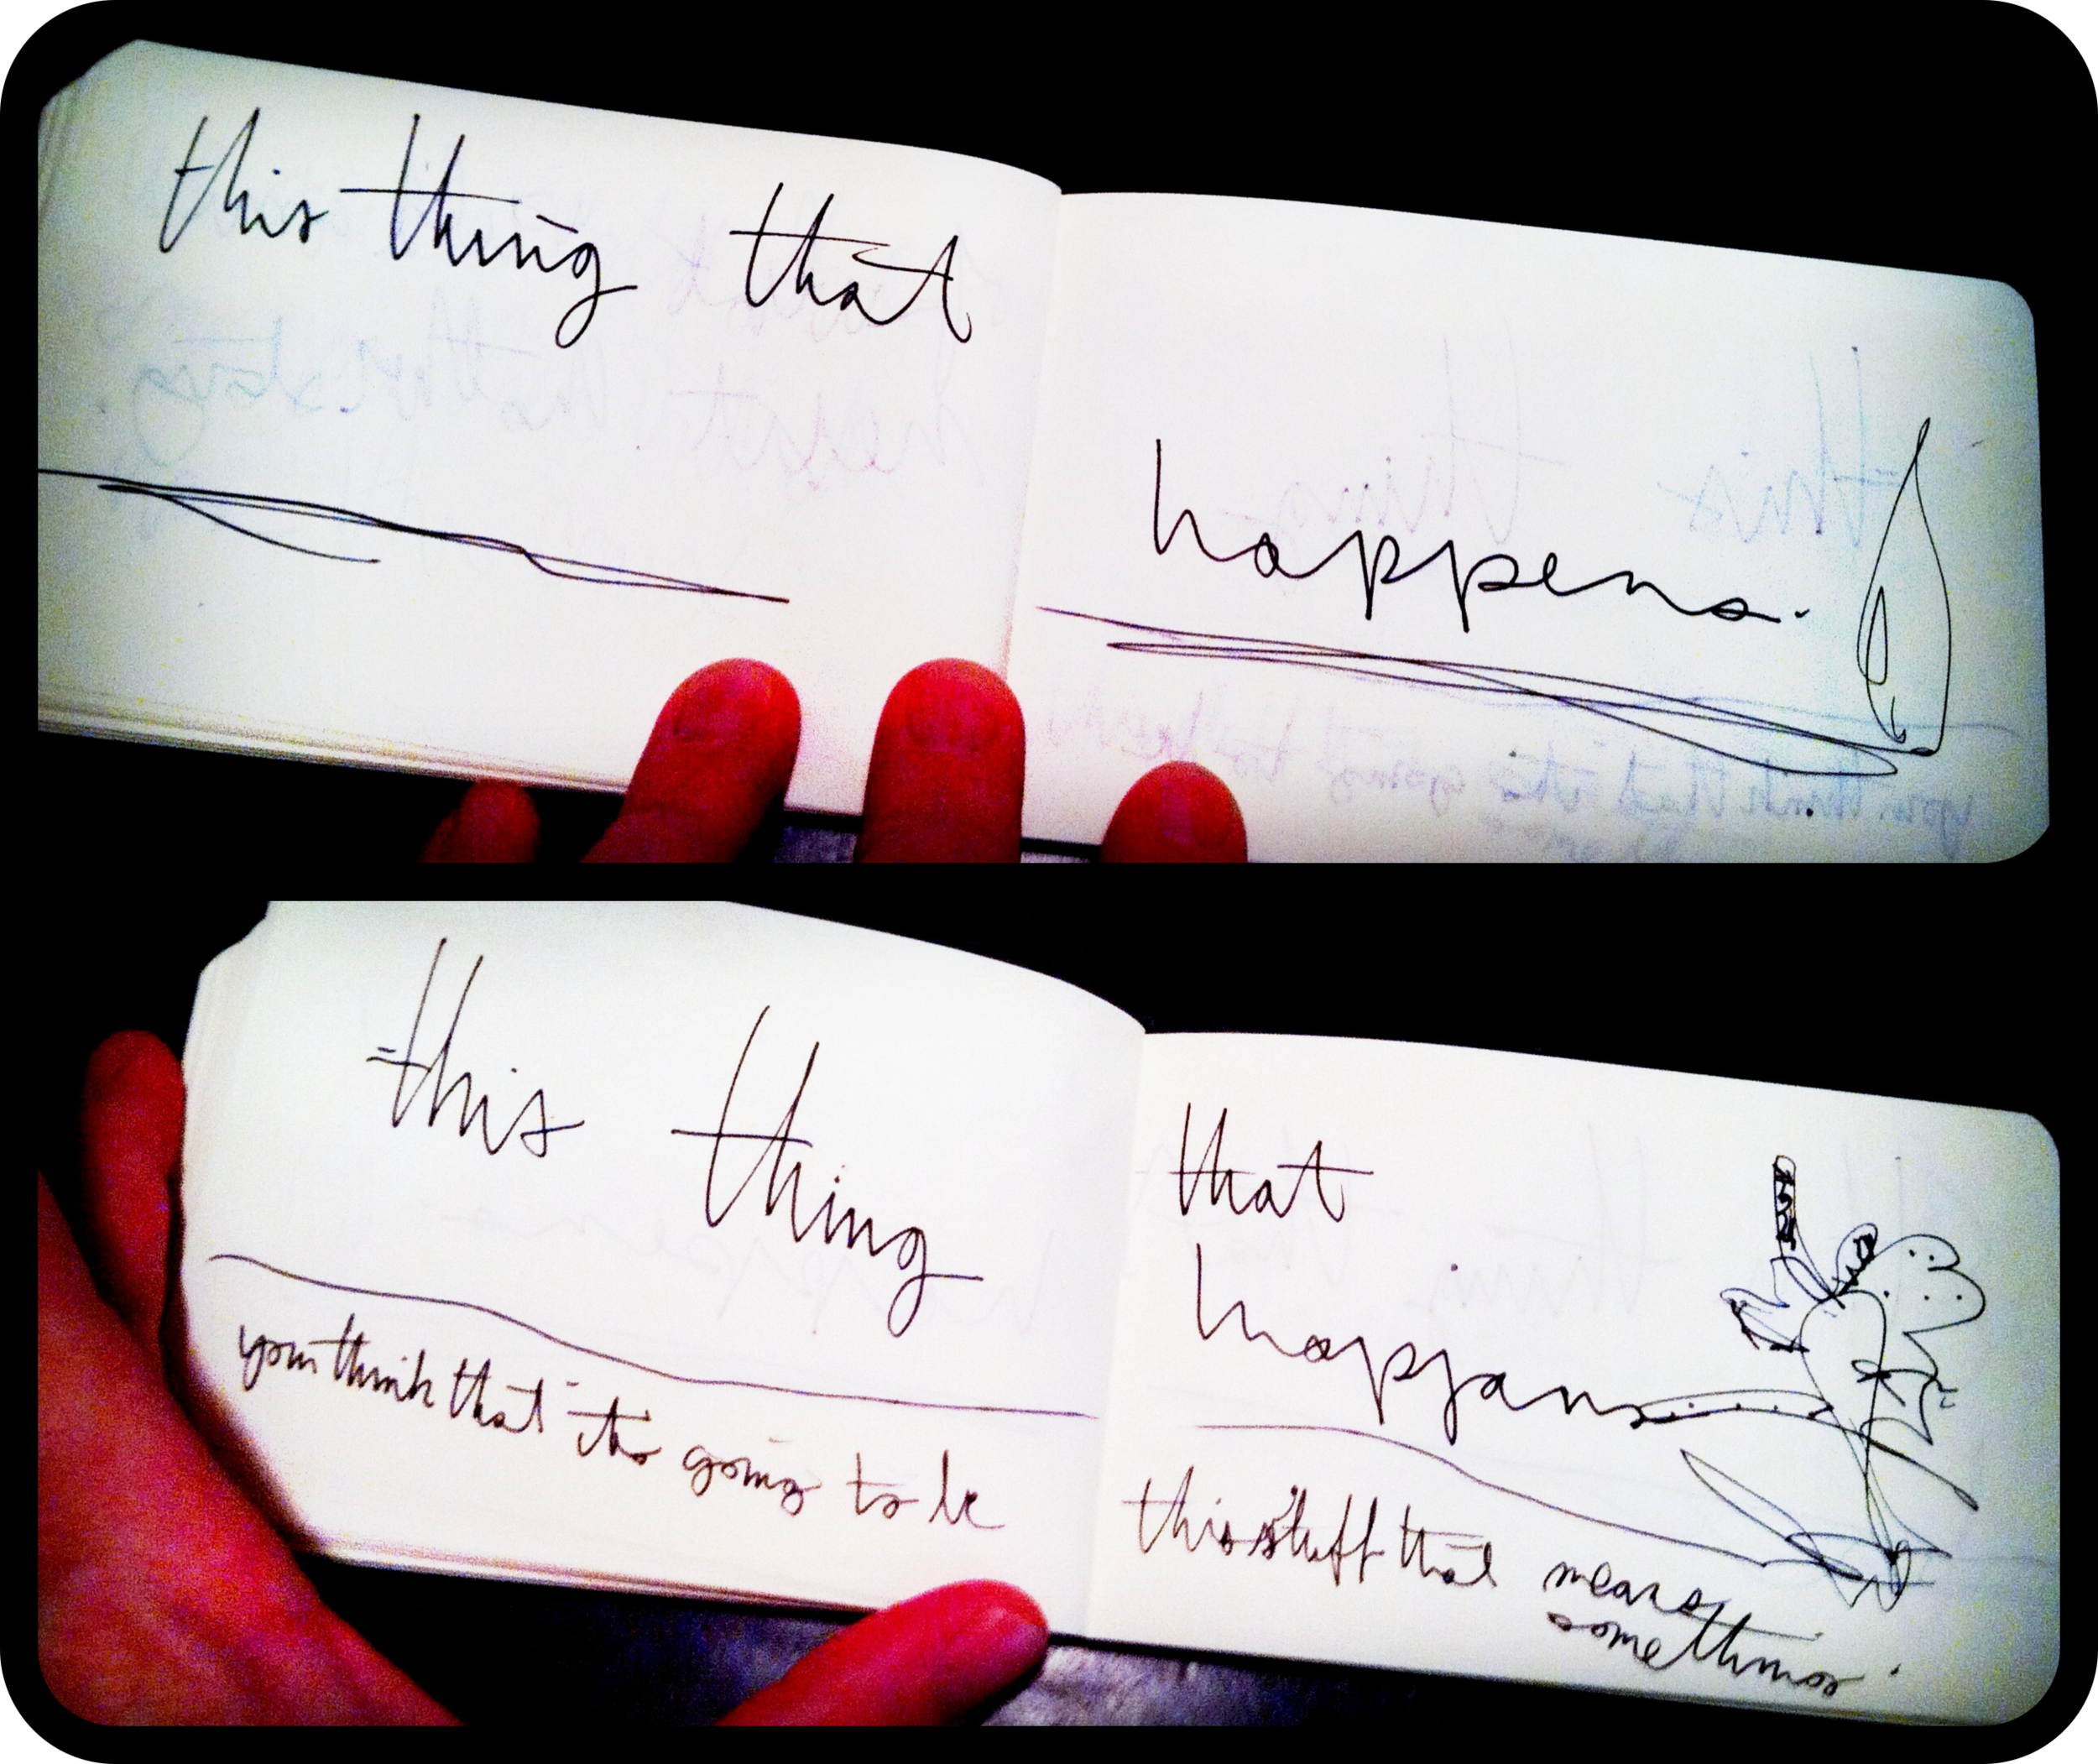 this thing that
happens.
this thing
you think that it's going to be
that
happens
this stuff that means
something.